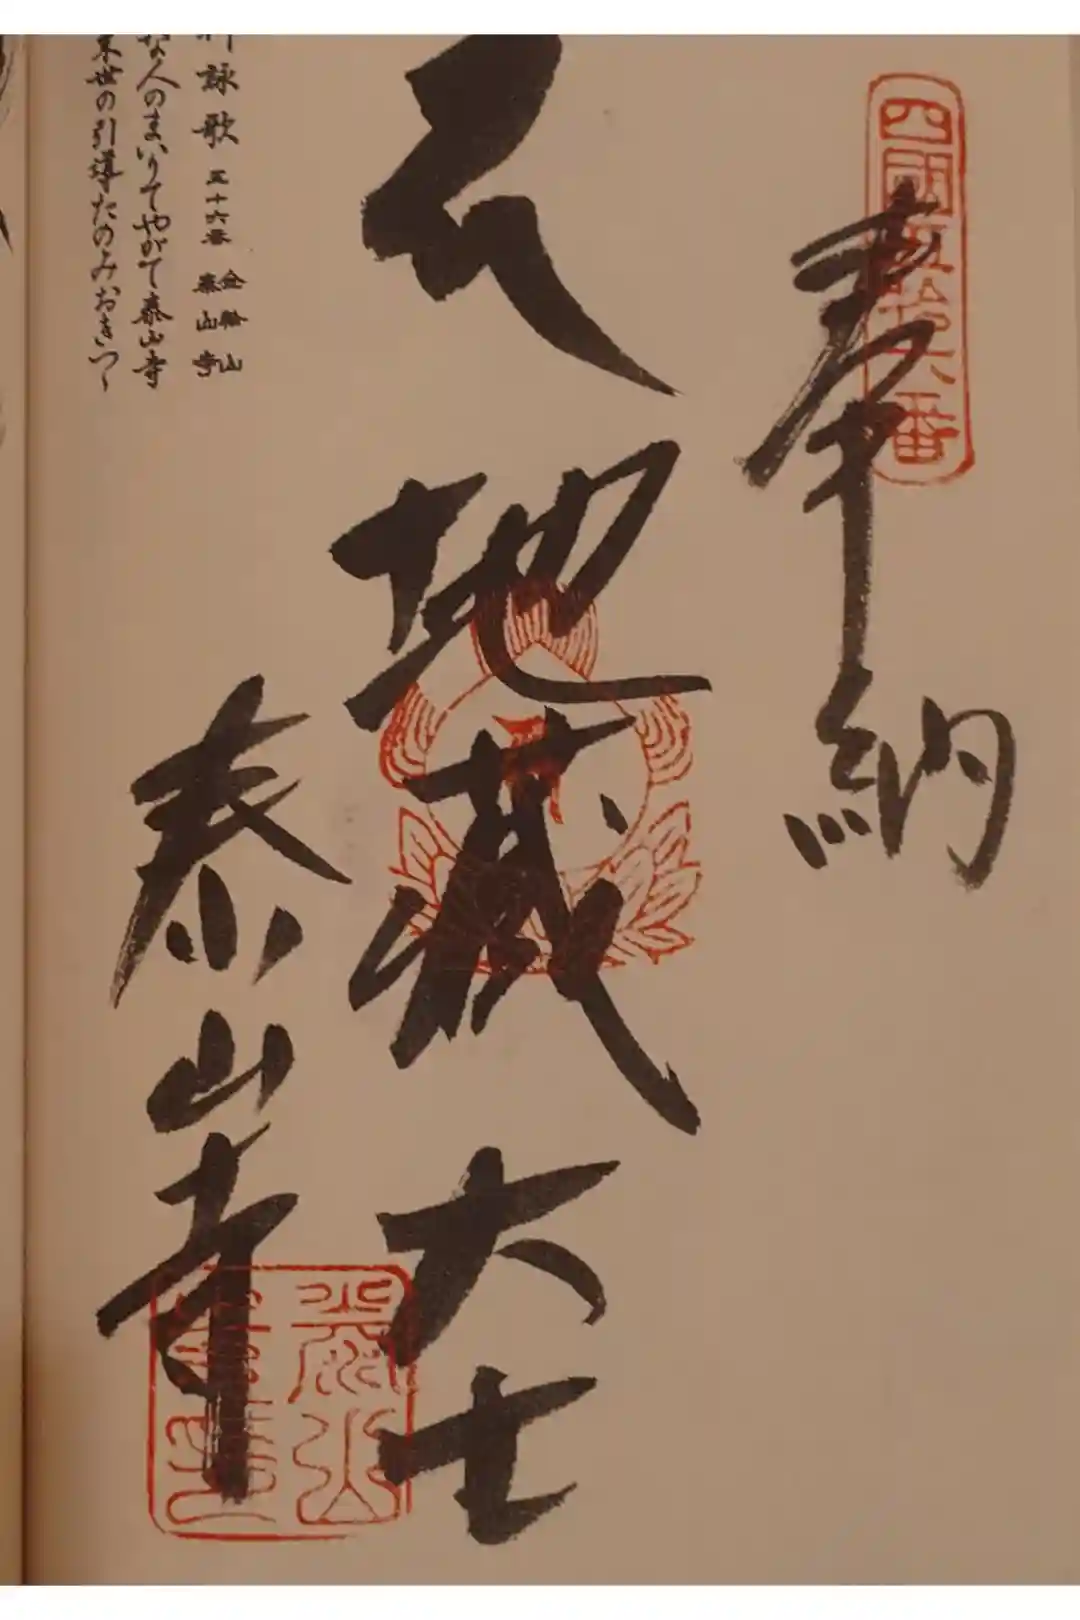 四國五拾六番
奉納
地蔵大士
泰山寺
詠歌 五十六番 金輪山 泰山寺
な人のまいりてやがて泰山寺
来世の引導たのみおきつゝ